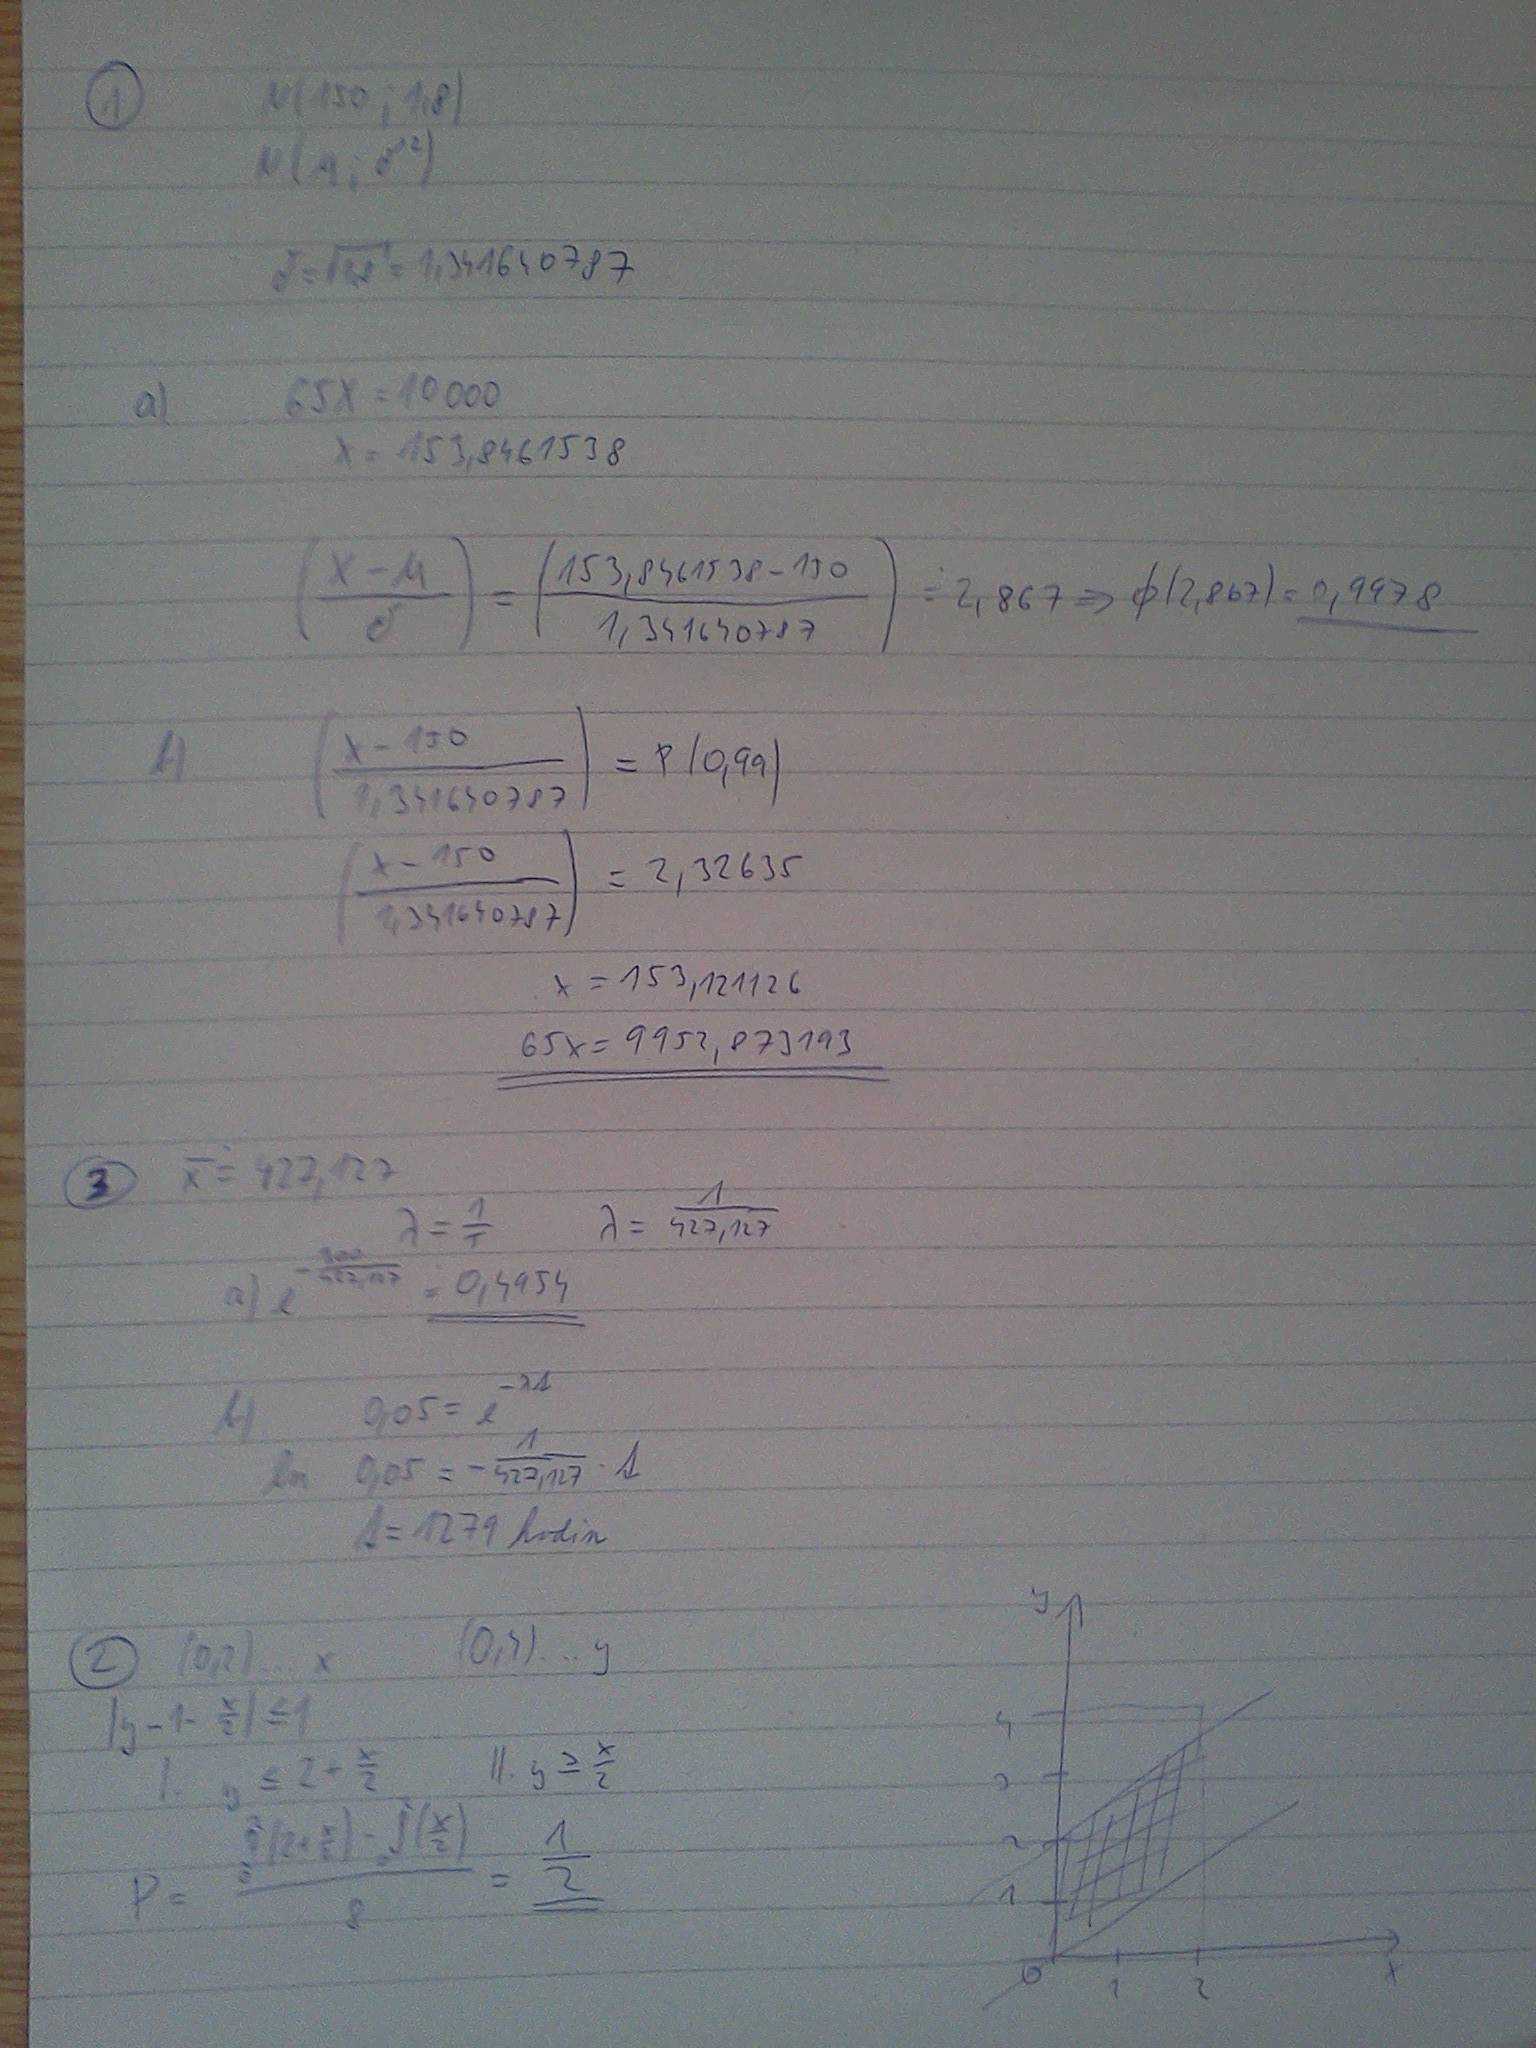 1
N(150 ; 1,8)
N(μ ; σ²)
σ = √1,8 = 1,341640787
a) 65X = 10000
x = 153,8461538
(X - μ / σ) = (153,8461538 - 150 / 1,341640787) = 2,867 ⇒ φ(2,867) = 0,9978
b) (x - 150 / 1,341640787) = P(0,99)
(x - 150 / 1,341640787) = 2,32635
x = 153,121126
65x = 9952,873193
3 x̄ = 427,127
λ = 1/τ λ = 1/427,127
a) e^(-300/427,127) = 0,4954
b) 0,05 = e^(-λt)
ln 0,05 = - 1/427,127 · t
t = 1279 hodin
2 (0,2) ... x (0,4) ... y
|y - 1 - x/2| ≤ 1
I. y ≤ 2 + x/2 II. y ≥ x/2
P = ∫(2 + x/2) - ∫(x/2) / 8 = 1/2
y
4
3
2
1
0 1 2 x